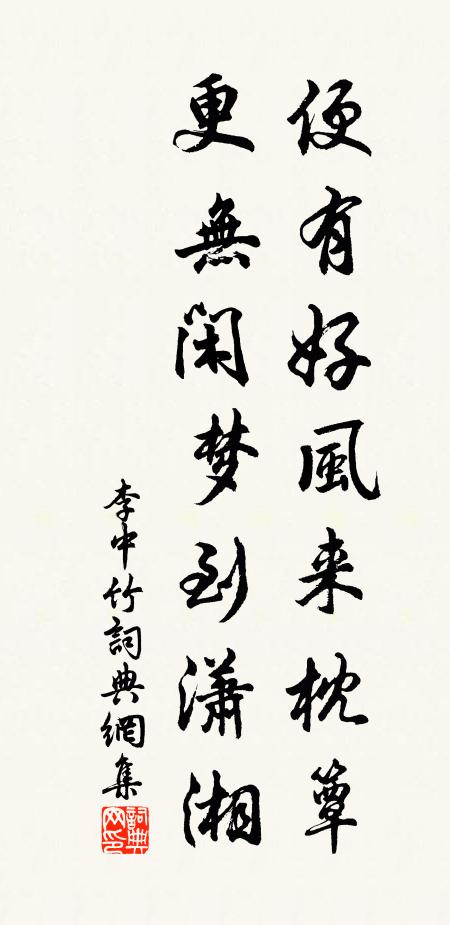 便有好風来枕簟
更無閑梦到瀟湘
李中竹詞典網集
詞典网印